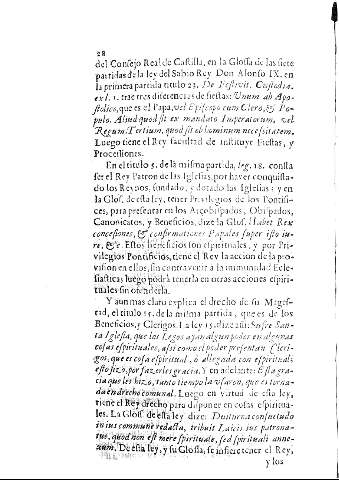 28
del Consejo Real de Castilla, en la Glossa de las siete
partidas de la ley del Sabio Rey Don Alonso IX. en
la primera partida titulo 23. De Festivit. Custodia.
ex l. 1. trae tres diferencias de fiestas: Unum ab Apo-
stolico, que es el Papa, vel Episcopo cum Clero, & Po-
pulo. Aliud quod sit ex mandato Imperatorum, vel
Regum. Tertium, quod sit ob hominum necessitatem.
Luego tiene el Rey facultad de instituir Fiestas, y
Procesiones.
En el titulo 5. de la misma partida, leg. 18. consta
ser el Rey Patron de las Iglesias, por haver conquista-
do los Reynos, fundado, y dotado las Iglesias: y en
la Glos. de esta ley, tener Privilegios de los Pontifi-
ces, para presentar en los Arçobispados, Obispados,
Canonicatos, y Beneficios, dize la Glos. Habet Rex
concessiones, & confirmationes Papales super isto iu-
re, &c. Estos beneficios son espirituales, y por Pri-
vilegios Pontificios, tiene el Rey la accion de la pro-
vision en ellos, sin contravenir a la immunidad Ecle-
siastica: luego podrà tenerla en otras acciones espiri-
tuales sin ofenderla.
Y aun mas claro explica el drecho de su Mages-
tad, el titulo 15. de la misma partida, que es de los
Beneficios, y Clerigos. La ley 15. dize assi: Sufre San-
ta Iglesia, que los Legos ayan algun poder en algunas
cosas espirituales, assi como el poder presentan Cleri-
gos, que es cosa espiritual, ò allegada con espiritual:
esto hizo, por fazerles gracia. Y en adelante: Esta gra-
cia que les hizo, tanto tiempo la usaron, que es torna-
da en drecho comunal. Luego en virtud de esta ley,
tiene el Rey drecho para disponer en cosas espiritua-
les. La Glos. de esta ley dize: Diuturna consuetudo
in ius commune redacta, tribuit Laicis ius patrona-
tus, quod non est mere spirituale, sed spirituali anne-
xum. De esta ley, y su Glossa, se infiere tener el Rey,
y los